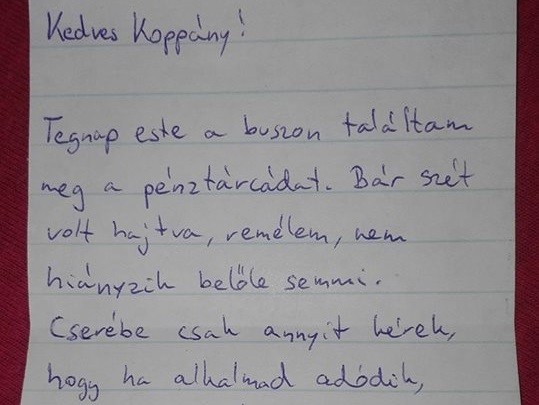 Kedves Koppány!
Tegnap este a buszon találtam
meg a pénztárcádat. Bár szét
volt hajtva, remélem, nem
hiányzik belőle semmi.
Cserébe csak annyit kérek,
hogy ha alkalmad adódik,